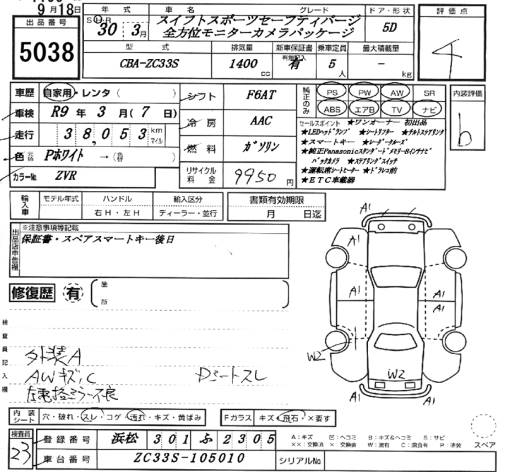 9月18日
出品番号
5038
年式 車名 グレード ドア・形状
30年3月 スイフトスポーツセーフティパージ
全方位モニターカメラパッケージ 5D
型式 排気量 新車保証書 乗車定員 最大積載量
CBA-ZC33S 1400cc 有 5人 -kg
評価点
4
車歴 自家用・レンタ( )
車検 R9年3月(7日)
走行 38,053 km マイル
色 Pホワイト→( )
カラーNo ZVR
シフト F6AT
冷房 AAC
燃料 ガソリン
リサイクル料金 9950円
純正のみ
PS PW AW SR
ABS エアB TV ナビ
セールスポイント ★ワンオーナー 初出品
★LEDヘッドランプ ★シートヒーター ★チルトステアリング
★スマートキー ★レーダークルーズ
★純正Panasonicスタンダードメモリー8インチナビ
バックカメラ ★ステアリングスイッチ
★運転席シートヒーター ★ドラレコ前
★ETC車載器
内装評価
b
輸入車 モデル年式 ハンドル 輸入区分
右H・左H ディーラー・並行
書類有効期限
月 日迄
※注意事項等記載
保証書・スペアスマートキー後日
修復歴 有
箇所
検査員記入欄
外装A
AWキズ、C
左電格ミラー不良
Dシートスレ
A1
A1
A1
A1
A1
A1
W2
W2
内装シート 穴・破れ・スレ・コゲ・汚れ・キズ・黄ばみ
Fガラス キズ・飛石・×要す
検査員
23
登録番号 浜松 301 ふ 2305
車台番号 ZC33S-105010
シリアルNo
A:キズ E:ヘコミ B:キズ&ヘコミ S:サビ
XX:交換済 X:要交換 W:波有 C:腐食有 P:塗装
スペア